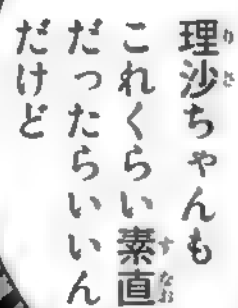 理沙ちゃんも
これくらい素直
だったらいいん
だけど